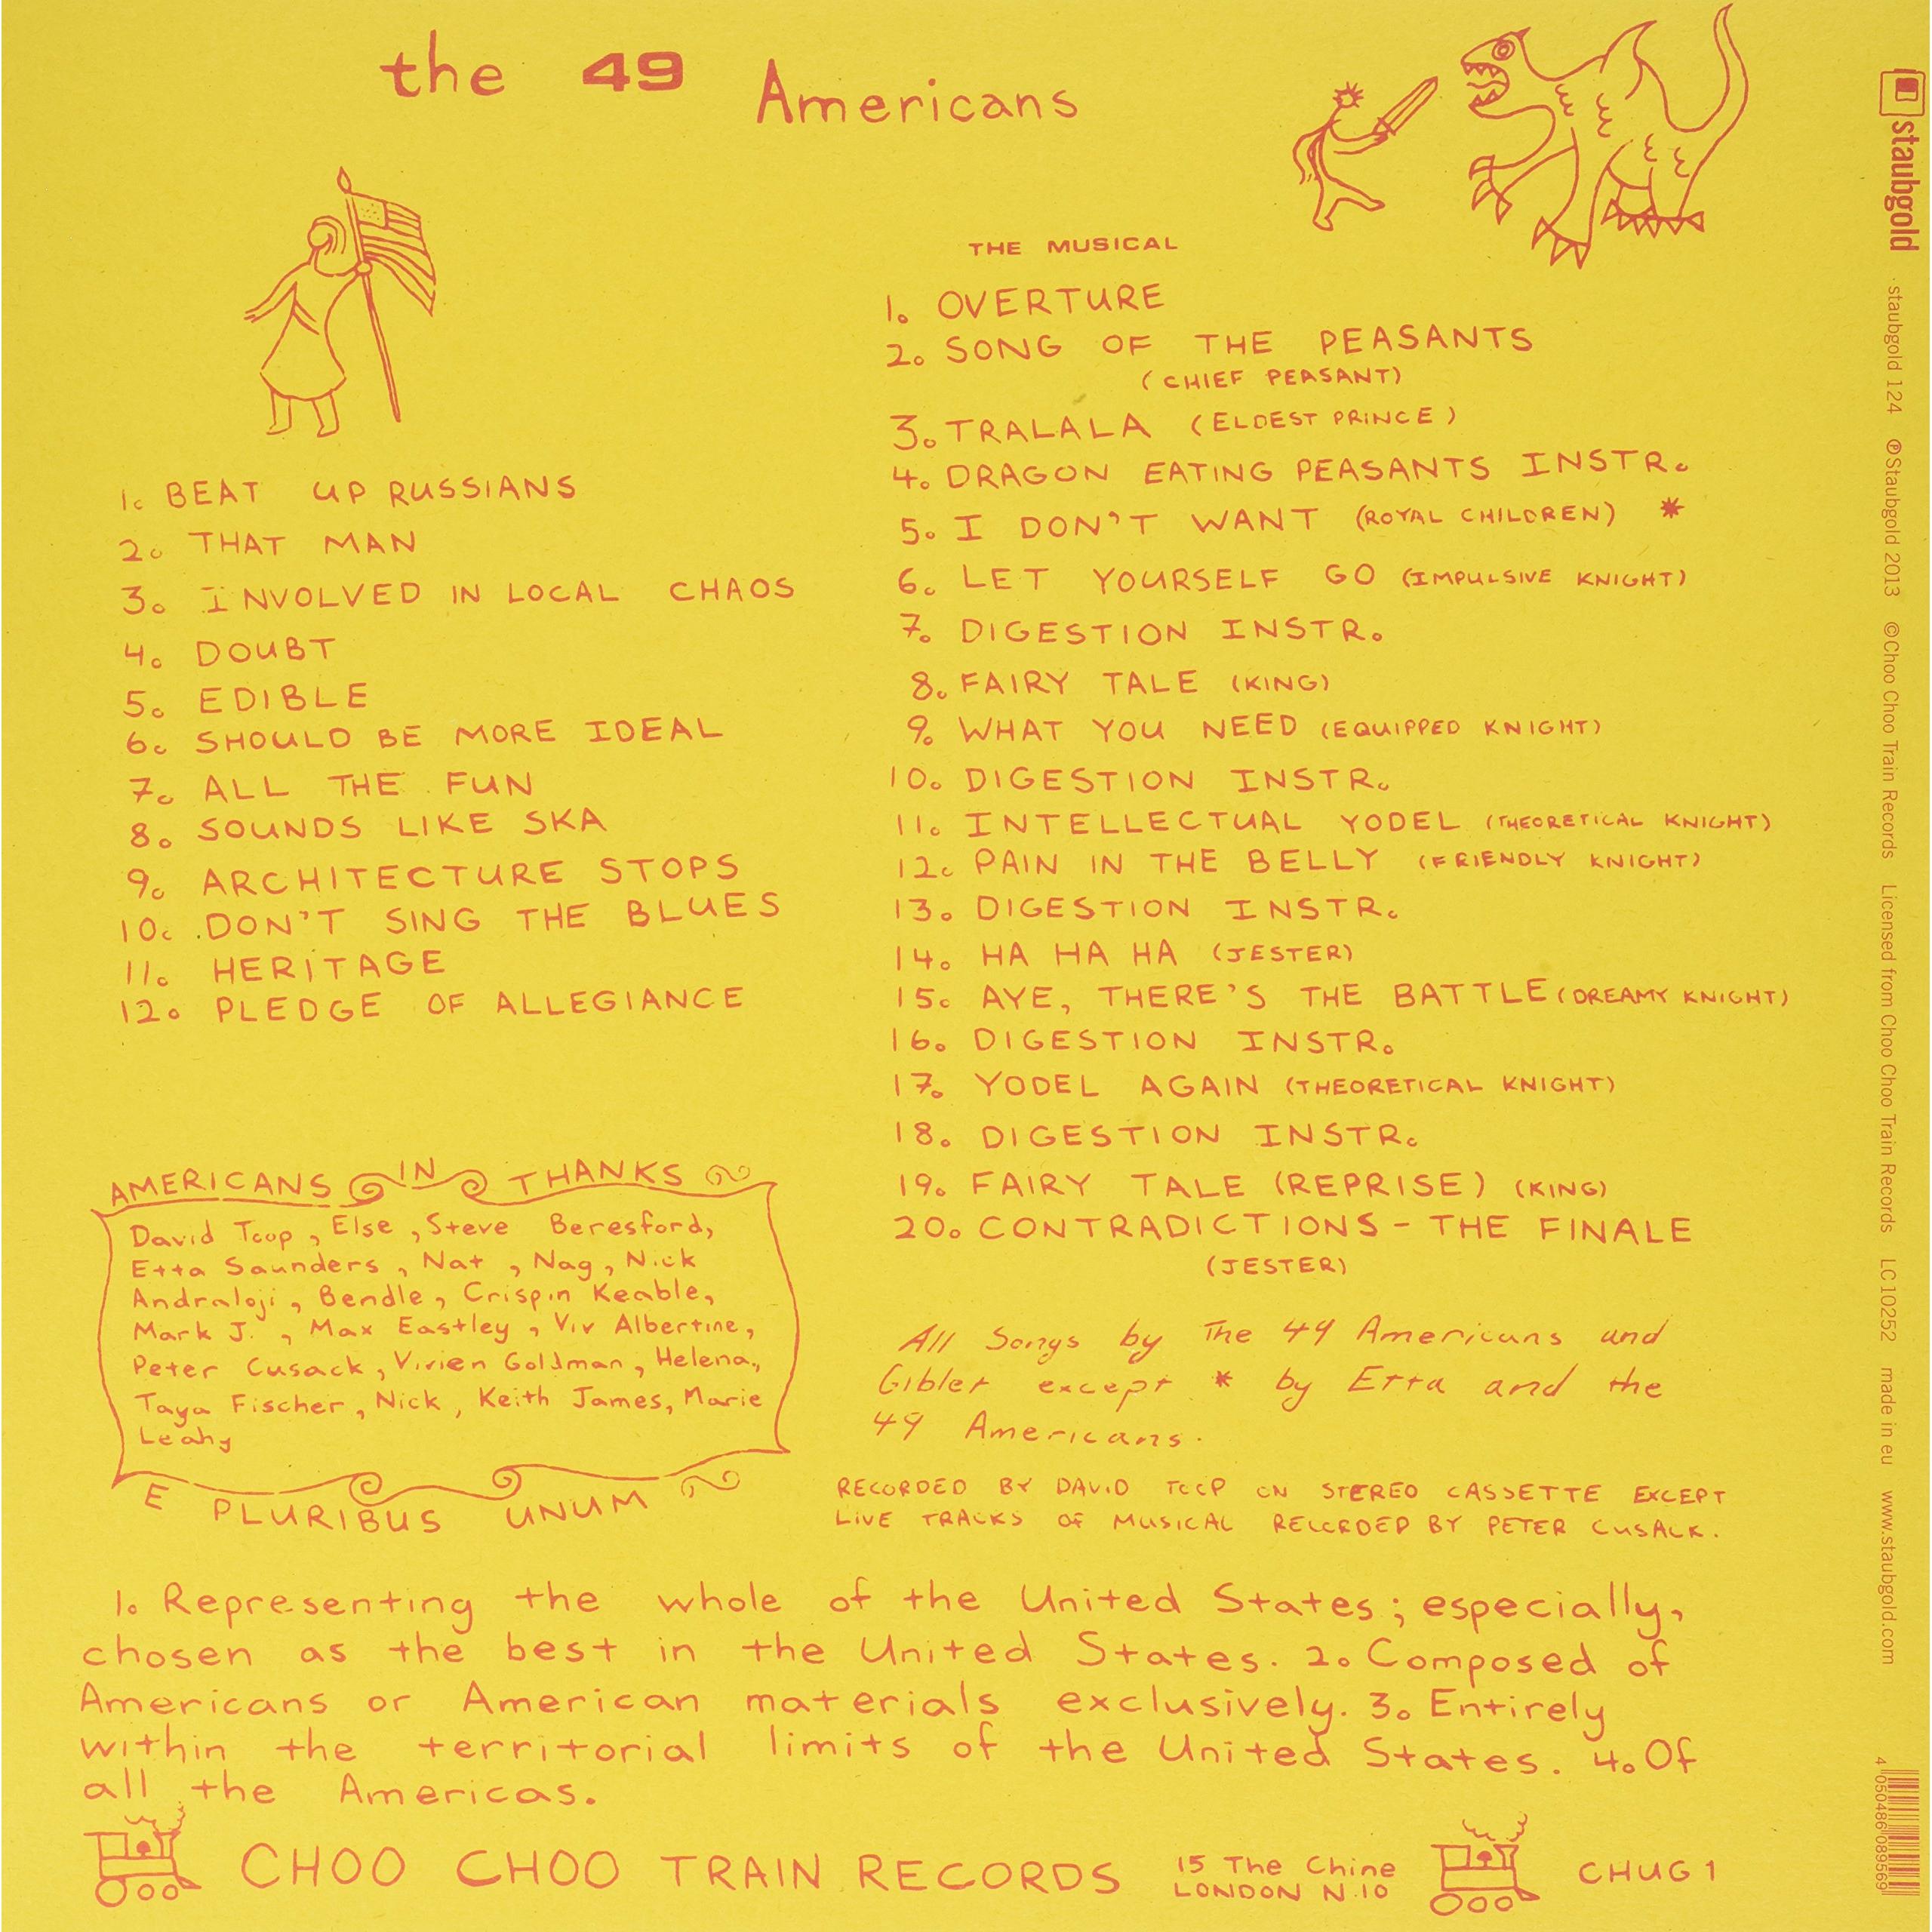 the 49 Americans
1. BEAT UP RUSSIANS
2. THAT MAN
3. INVOLVED IN LOCAL CHAOS
4. DOUBT
5. EDIBLE
6. SHOULD BE MORE IDEAL
7. ALL THE FUN
8. SOUNDS LIKE SKA
9. ARCHITECTURE STOPS
10. DON'T SING THE BLUES
11. HERITAGE
12. PLEDGE OF ALLEGIANCE
THE MUSICAL
1. OVERTURE
2. SONG OF THE PEASANTS
(CHIEF PEASANT)
3. TRALALA (ELDEST PRINCE)
4. DRAGON EATING PEASANTS INSTR.
5. I DON'T WANT (ROYAL CHILDREN) *
6. LET YOURSELF GO (IMPULSIVE KNIGHT)
7. DIGESTION INSTR.
8. FAIRY TALE (KING)
9. WHAT YOU NEED (EQUIPPED KNIGHT)
10. DIGESTION INSTR.
11. INTELLECTUAL YODEL (THEORETICAL KNIGHT)
12. PAIN IN THE BELLY (FRIENDLY KNIGHT)
13. DIGESTION INSTR.
14. HA HA HA (JESTER)
15. AYE, THERE'S THE BATTLE (DREAMY KNIGHT)
16. DIGESTION INSTR.
17. YODEL AGAIN (THEORETICAL KNIGHT)
18. DIGESTION INSTR.
19. FAIRY TALE (REPRISE) (KING)
20. CONTRADICTIONS - THE FINALE
(JESTER)
AMERICANS IN THANKS
David Toop, Else, Steve Beresford,
Etta Saunders, Nat, Nag, Nick
Andraloji, Bendle, Crispin Keable,
Mark J., Max Eastley, Viv Albertine,
Peter Cusack, Vivien Goldman, Helena,
Taya Fischer, Nick, Keith James, Marie
Leahy
E PLURIBUS UNUM
All Songs by The 49 Americans and
Giblet except * by Etta and the
49 Americans.
RECORDED BY DAVID TOOP ON STEREO CASSETTE EXCEPT
LIVE TRACKS OF MUSICAL RECORDED BY PETER CUSACK.
1. Representing the whole of the United States; especially,
chosen as the best in the United States. 2. Composed of
Americans or American materials exclusively. 3. Entirely
within the territorial limits of the United States. 4. Of
all the Americas.
CHOO CHOO TRAIN RECORDS
15 The Chine
LONDON N.10
CHUG 1
staubgold
staubgold 124 ℗Staubgold 2013 ©Choo Choo Train Records Licensed from Choo Choo Train Records LC 10252 made in eu www.staubgold.com
4 050486 089569